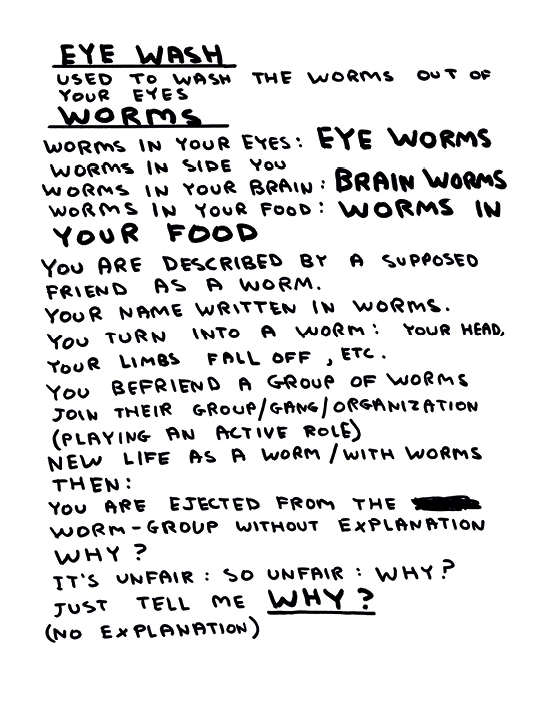 EYE WASH
USED TO WASH THE WORMS OUT OF
YOUR EYES
WORMS
WORMS IN YOUR EYES: EYE WORMS
WORMS IN SIDE YOU
WORMS IN YOUR BRAIN: BRAIN WORMS
WORMS IN YOUR FOOD: WORMS IN
YOUR FOOD
YOU ARE DESCRIBED BY A SUPPOSED
FRIEND AS A WORM.
YOUR NAME WRITTEN IN WORMS.
YOU TURN INTO A WORM: YOUR HEAD,
YOUR LIMBS FALL OFF, ETC.
YOU BEFRIEND A GROUP OF WORMS
JOIN THEIR GROUP/GANG/ORGANIZATION
(PLAYING AN ACTIVE ROLE)
NEW LIFE AS A WORM/WITH WORMS
THEN:
YOU ARE EJECTED FROM THE
WORM-GROUP WITHOUT EXPLANATION
WHY?
IT'S UNFAIR: SO UNFAIR: WHY?
JUST TELL ME WHY?
(NO EXPLANATION)